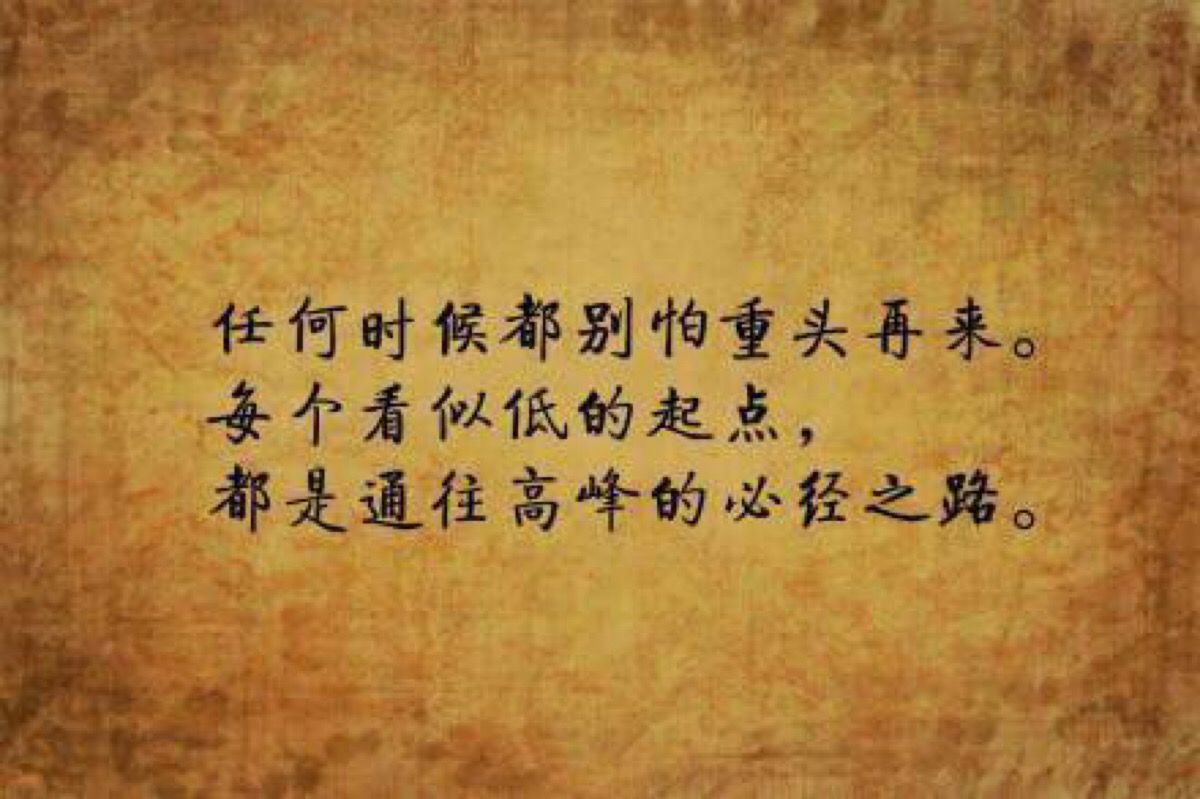 任何时候都别怕重头再来。
每个看似低的起点，
都是通往高峰的必经之路。